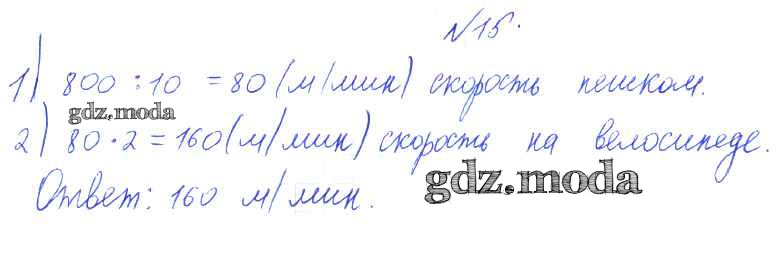 №15.
1) 800 : 10 = 80 (м/мин) скорость пешком.
gdz.moda
2) 80 · 2 = 160 (м/мин) скорость на велосипеде.
Ответ: 160 м/мин.
gdz.moda